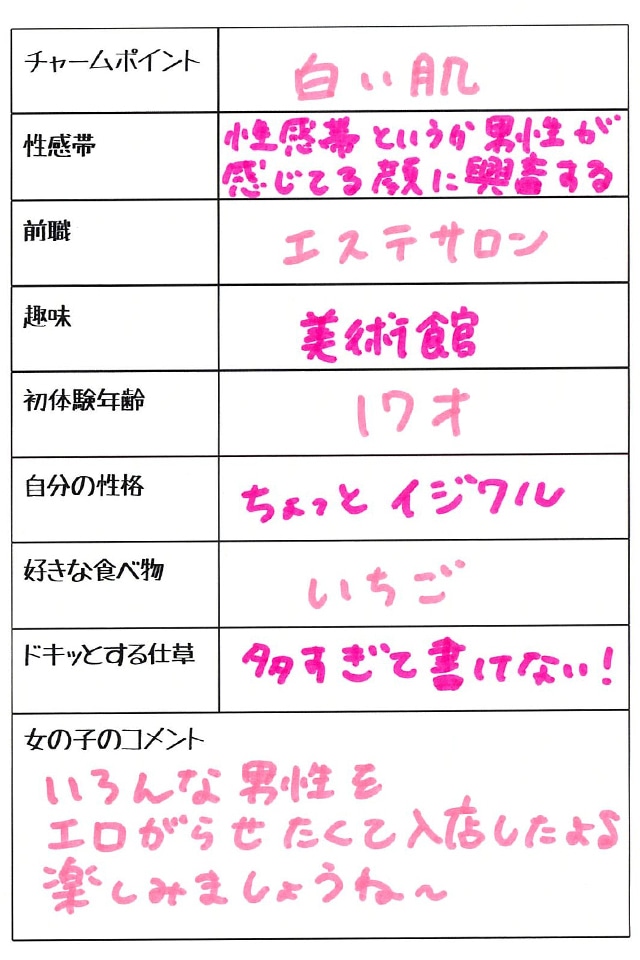 チャームポイント
白い肌
性感帯
性感帯というか男性が
感じてる顔に興奮する
前職
エステサロン
趣味
美術館
初体験年齢
17才
自分の性格
ちょっとイジワル
好きな食べ物
いちご
ドキッとする仕草
多すぎて書けない!
女の子のコメント
いろんな男性を
エロがらせたくて入店したよ
楽しみましょうね~